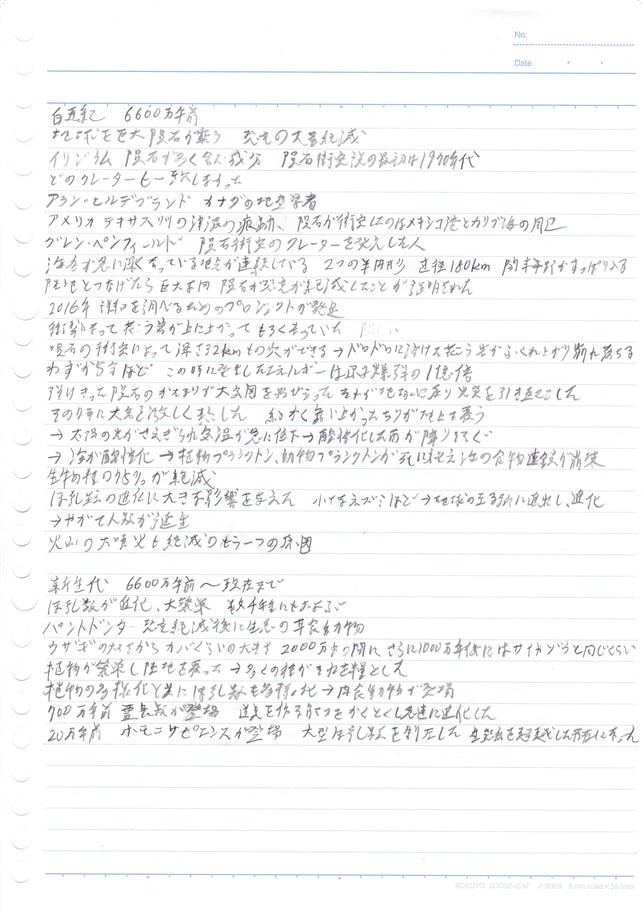 No.
Date
白亜紀 6600万年前
地球を巨大隕石が襲う 恐竜の大量絶滅
イリジウム 隕石が多く含む成分 隕石衝突説の最初は1970年代
どのクレーターも一致しなかった
アラン・ヒルデブランド カナダの地質学者
アメリカ テキサス州の津波の痕跡、隕石が衝突したのはメキシコ湾とカリブ海の周辺
グレン・ペンフィールド 隕石衝突のクレーターを発見した人
海底が急に深くなっている地点が連続している 2つの半円形 直径180km 関東平野がすっぽり入る
陸地とつなげたら巨大な円 隕石が恐竜が絶滅したことが証明された
2016年 岩石を調べるためのプロジェクトが発足
衝撃によって花こう岩が上に上がってもろくなっていた
隕石の衝突によって深さ32kmもの穴ができる→ドロドロに溶けた花こう岩がふくれ上がり崩れ落ちる
わずか5分ほど この時に発生したエネルギーは原子爆弾の1億倍
はじけきった隕石のかたまりが大気圏を飛びそれが地面に戻り火災を引き起こした
その後に大気を激しく熱した 細かく舞い上がったちりが陸上を覆う
→太陽の光がさえぎられ気温が急に低下→酸性化した雨が降りそそぐ
→海が酸性化→植物プランクトン、動物プランクトンが死に絶え海の食物連鎖が崩壊
生物種の75%が絶滅
ほ乳類の進化に大きな影響を与えた 小さなネズミほど→地球の至る所に進出し、進化
→やがて人類が誕生
火山の大噴火も絶滅のもう一つの原因
新生代 6600万年前～現在まで
ほ乳類が進化、大繁栄 数千種にもおよぶ
パントドンター 恐竜絶滅後に生息の草食動物
ウサギの大きさからカバぐらいの大きさ 2000万年の間に さらに1000万年後にはサイやゾウと同じぐらい
植物が繁栄し陸地を覆った→多くの種がそれを糧とした
植物の多様化と共にほ乳類も多様化→肉食動物が登場
700万年前 霊長類が登場 道具を作る能力をかくとくし急速に進化した
20万年前 ホモ・サピエンスが登場 大型ほ乳類を制圧した 生態系を超越した存在になった
KOKUYO LOOSE-LEAF 6 mm ruled×36 lines